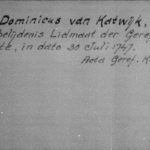 Dominicus van Katwijk,
belijdenis Lidmaat der Geref.
te, in dato 30 Juli 1747.
Acta Geref. K